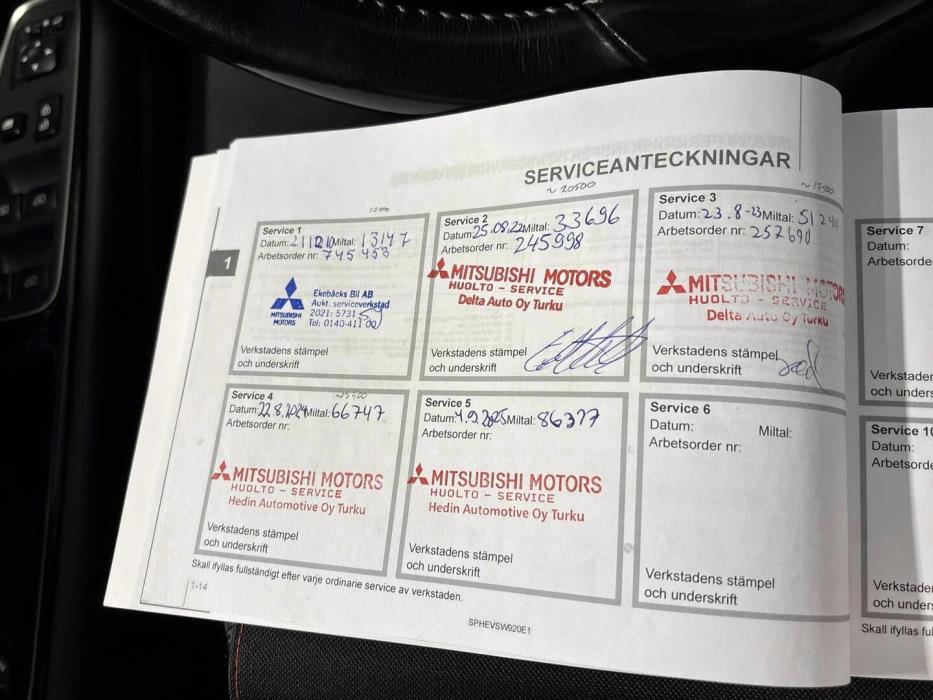 SERVICEANTECKNINGAR
~ 20500
~ 17500
Service 1
Datum: 211210 Miltal: 13147
Arbetsorder nr: 745453
MITSUBISHI
MOTORS
Ekebäcks Bil AB
Aukt. serviceverkstad
2021: 5731
Tel: 0140-411 00
Verkstadens stämpel
och underskrift
Service 2
Datum: 25.08.22 Miltal: 33696
Arbetsorder nr: 245998
MITSUBISHI MOTORS
HUOLTO - SERVICE
Delta Auto Oy Turku
Verkstadens stämpel
och underskrift
Service 3
Datum: 23.8-23 Miltal:
Arbetsorder nr: 257690
MITSUBISHI MOTORS
HUOLTO - SERVICE
Delta Auto Oy Turku
Verkstadens stämpel
och underskrift
Service 4
Datum: 22.8.2024 Miltal: 66747
Arbetsorder nr:
MITSUBISHI MOTORS
HUOLTO - SERVICE
Hedin Automotive Oy Turku
Verkstadens stämpel
och underskrift
Service 5
Datum: 1.9.2025 Miltal: 86377
Arbetsorder nr:
MITSUBISHI MOTORS
HUOLTO - SERVICE
Hedin Automotive Oy Turku
Verkstadens stämpel
och underskrift
Service 6
Datum: Miltal:
Arbetsorder nr:
Verkstadens stämpel
och underskrift
Skall ifyllas fullständigt efter varje ordinarie service av verkstaden.
1-14
SPHEVSW920E1
1
Service 7
Datum:
Arbetsorde
Verkstaden
och unders
Service 10
Datum:
Arbetsorde
Verkstade
och under
Skall ifyllas ful